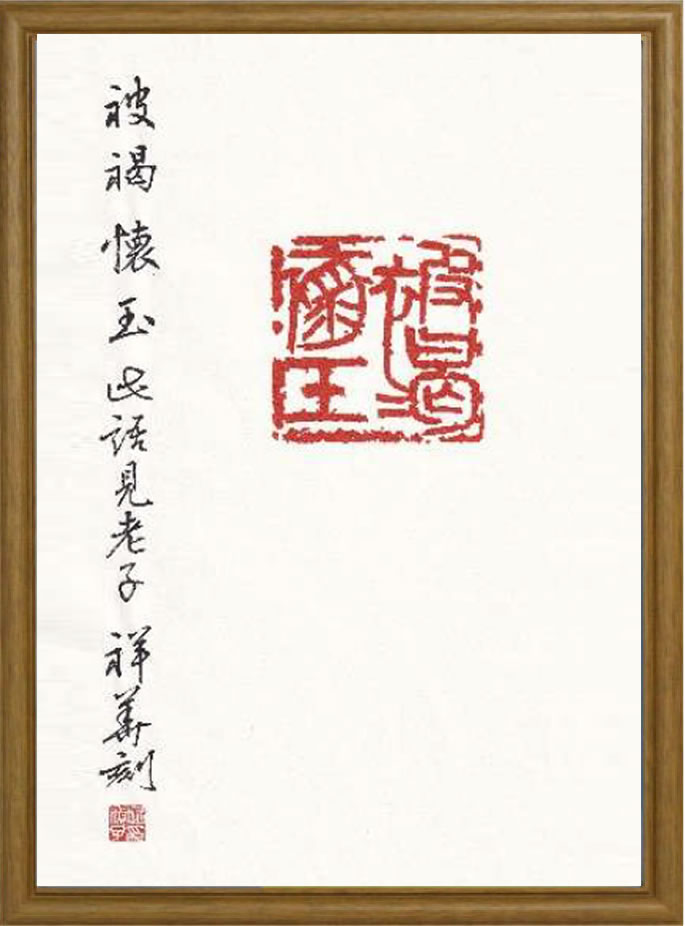 被褐懷玉
被褐懷玉此語見老子祥華刻